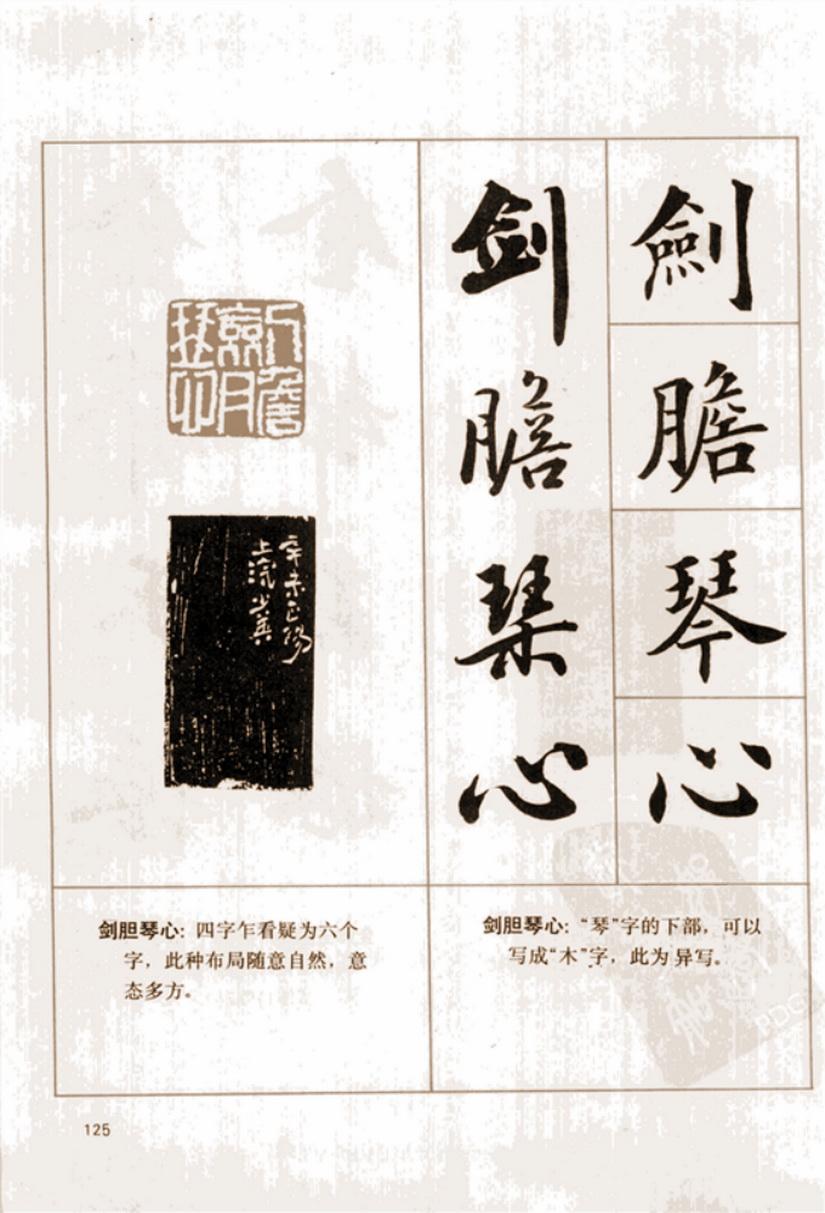 劍
膽
琴
心
劍
膽
琹
心
劍膽琴心
辛未正陽
上浣
剑胆琴心：“琴”字的下部，可以
写成“木”字，此为异写。
剑胆琴心：四字乍看疑为六个
字，此种布局随意自然，意
态多方。
125
PDG